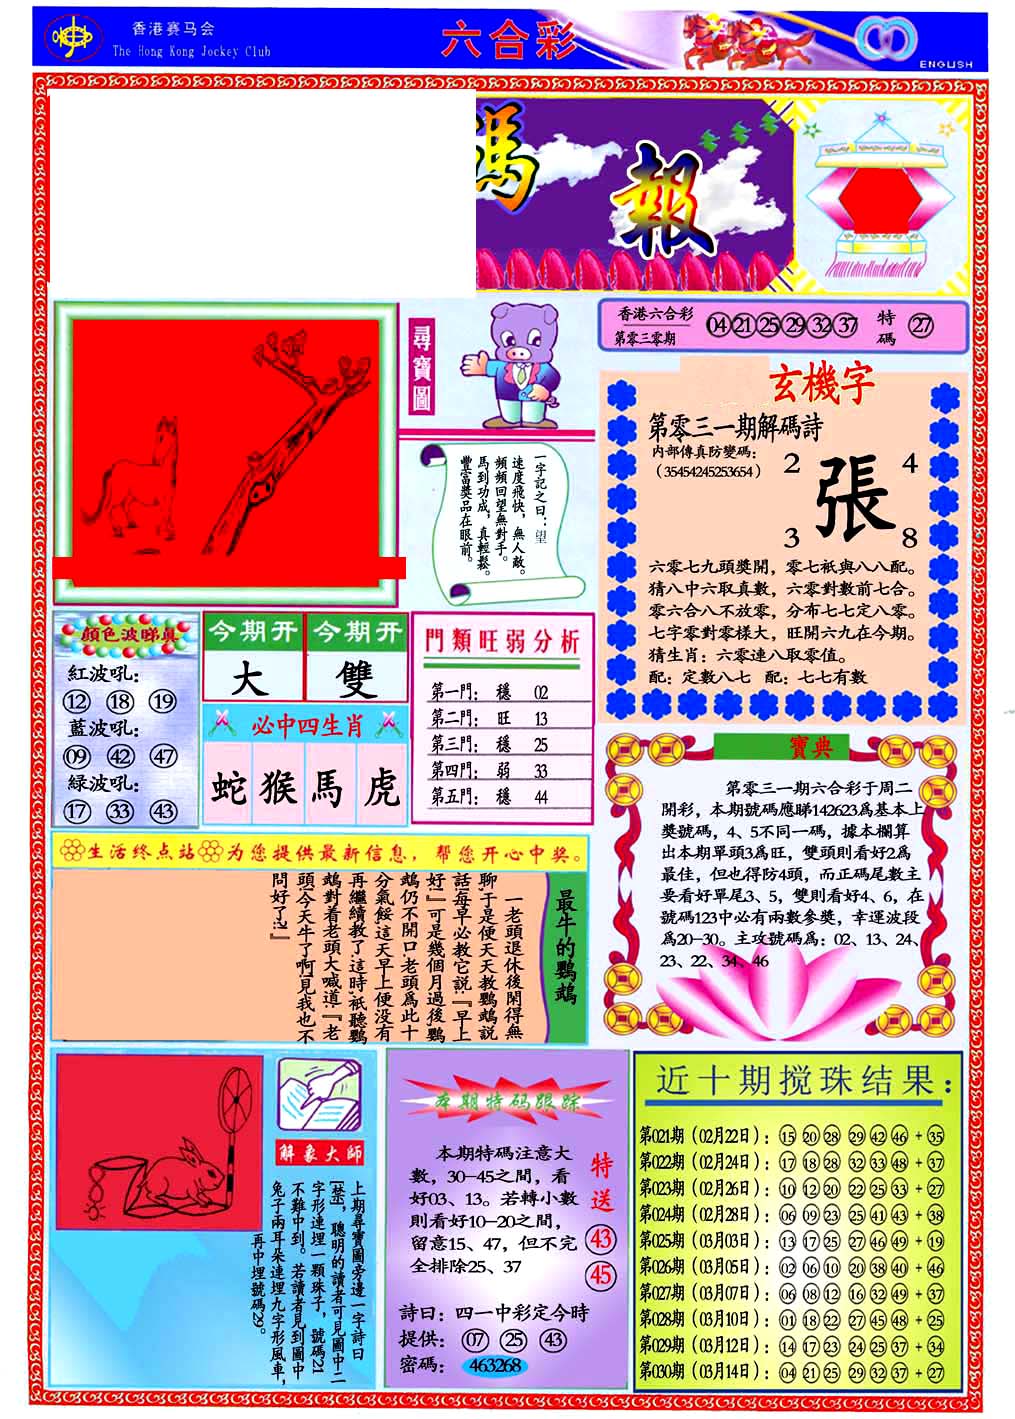 香港赛马会
The Hong Kong Jockey Club
六合彩
ENGLISH
碼報
尋寶圖
香港六合彩
第零三零期
04 21 25 29 32 37
特碼
27
一字記之曰：望
速度飛快，無人敵。
頻頻回望無對手。
馬到功成，真輕鬆。
豐富獎品在眼前。
玄機字
第零三一期解碼詩
内部傳真防變碼：
（35454245253654）
2 4
張
3 8
六零七九頭獎開，零七衹與八八配。
猜八中六取真數，六零對數前七合。
零六合八不放零，分布七七定八零。
七字零對零樣大，旺開六九在今期。
猜生肖：六零連八取零值。
配：定數八七 配：七七有數
顔色波睇真
紅波吼：
12 18 19
藍波吼：
09 42 47
緑波吼：
17 33 43
今期开 今期开
大 雙
必中四生肖
蛇 猴 馬 虎
門類旺弱分析
第一門： 穩 02
第二門： 旺 13
第三門： 穩 25
第四門： 弱 33
第五門： 穩 44
寶典
第零三一期六合彩于周二
開彩，本期號碼應睇142623爲基本上
獎號碼，4、5不同一碼，據本欄算
出本期單頭3爲旺，雙頭則看好2爲
最佳，但也得防4頭，而正碼尾數主
要看好單尾3、5，雙則看好4、6，在
號碼123中必有兩數參獎，幸運波段
爲20-30。主攻號碼爲：02、13、24、
23、22、34、46
生活终点站 为您提供最新信息，帮您开心中奖。
最牛的鸚鵡
一老頭退休後閑得無
聊，于是便天天教鸚鵡說
話，每早必教它説：『早上
好！』可是幾個月過後鸚
鵡仍不開口，老頭爲此十
分氣餒，這天早上便没有
再繼續教了，這時，衹聽鸚
鵡對着老頭大喊道：『老
頭，今天牛了啊，見我也不
問好了？！』
解象大師
上期尋寶圖旁邊一字詩曰
[禁]，聰明的讀者可見圖中二
字形連埋一顆珠子，號碼21
不難中到。若讀者見到圖中
兔子兩耳朵連埋九字形風車，
再中埋號碼29。
本期特码跟踪
本期特碼注意大
數，30-45之間，看
好03、13。若轉小數
則看好10-20之間，
留意15、47，但不完
全排除25、37
特送
43
45
詩曰：四一中彩定今時
提供： 07 25 43
密碼： 463268
近十期搅珠结果：
第021期（02月22日）：15 20 28 29 42 46 + 35
第022期（02月24日）：17 18 28 32 33 48 + 37
第023期（02月26日）：10 12 20 22 25 33 + 27
第024期（02月28日）：06 09 23 25 41 43 + 38
第025期（03月03日）：13 17 25 27 46 49 + 19
第026期（03月05日）：02 06 10 20 38 40 + 46
第027期（03月07日）：06 08 12 16 32 49 + 37
第028期（03月10日）：01 18 22 27 45 48 + 25
第029期（03月12日）：14 17 23 24 25 37 + 34
第030期（03月14日）：04 21 25 29 32 37 + 27